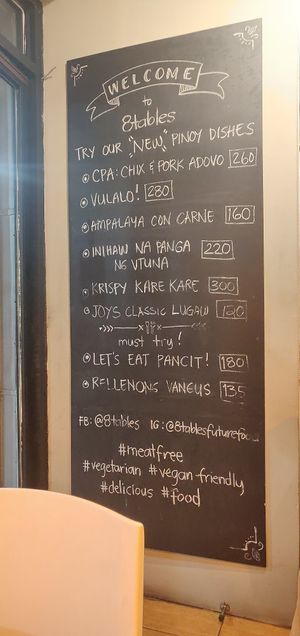 WELCOME
to
8tables
TRY OUR "NEW" PINOY DISHES
CPA: CHIX & PORK ADOVO 260
VULALO! 280
AMPALAYA CON CARNE 160
INIHAW NA PANGA 220
NG VTUNA
KRISPY KARE KARE 300
JOYS CLASSIC LUGAW 120
must try!
LET'S EAT PANCIT! 180
RELLENONG VANGUS 135
FB: @8tables IG: @8tablesfuturefood
#meatfree
#vegetarian #vegan-friendly
#delicious #food